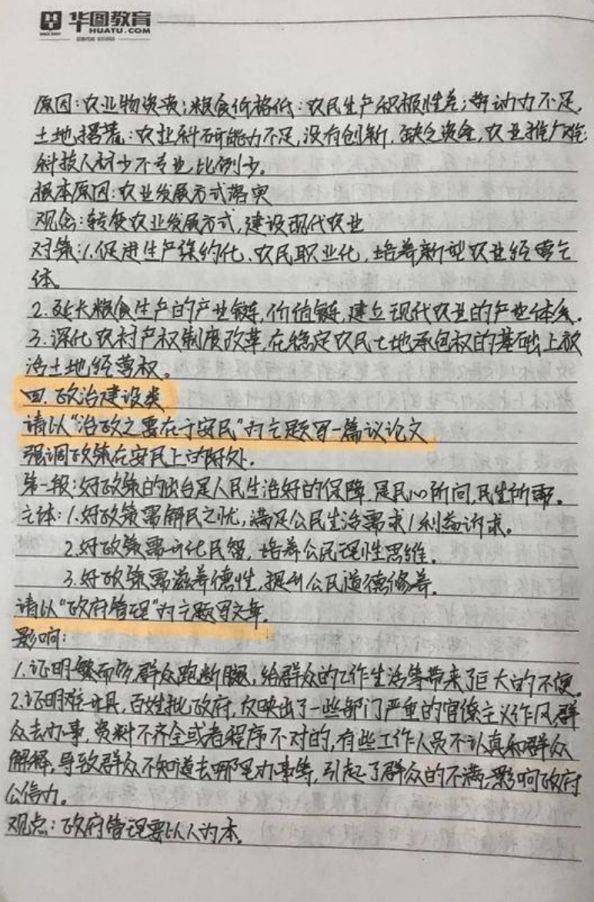 华图教育
HUATU.COM
原因:农业物资贵;粮食价格低:农民生产积极性差;劳动力不足,
土地撂荒:农业科研能力不足,没有创新,缺乏资金,农业推广难;
科技人材少不专业,比例少。
根本原因:农业发展方式落实
观念:转变农业发展方式,建设现代农业
对策:1.促进生产集约化、农民职业化,培养新型农业经营主
体。
2.延长粮食生产的产业链,价值链,建立现代农业的产业体系。
3.深化农村产权制度改革,在稳定农民土地承包权的基础上放
活土地经营权。
四.政治建设类
请以“治政之要在于安民”为主题写一篇议论文
强调政策在安民上的好处。
第一段:好政策的出台是人民生活好的保障,是民心所向,民生所需。
主体:1.好政策需解民之忧,满足公民生活需求/利益诉求。
2.好政策需开化民智,培养公民理性思维。
3.好政策需滋养德性,提升公民道德修养。
请以“政府管理”为主题写文章.
影响:
1.证明繁而多,群众跑断腿,给群众的工作生活等带来了巨大的不便。
2.证明难开具,百姓批政府,反映出了一些部门严重的官僚主义作风,群
众去办事,资料不齐全或者程序不对的,有些工作人员不认真和群众
解释,导致群众不知道去哪里办事等,引起了群众的不满,影响政府
公信力。
观点:政府管理要以人为本.